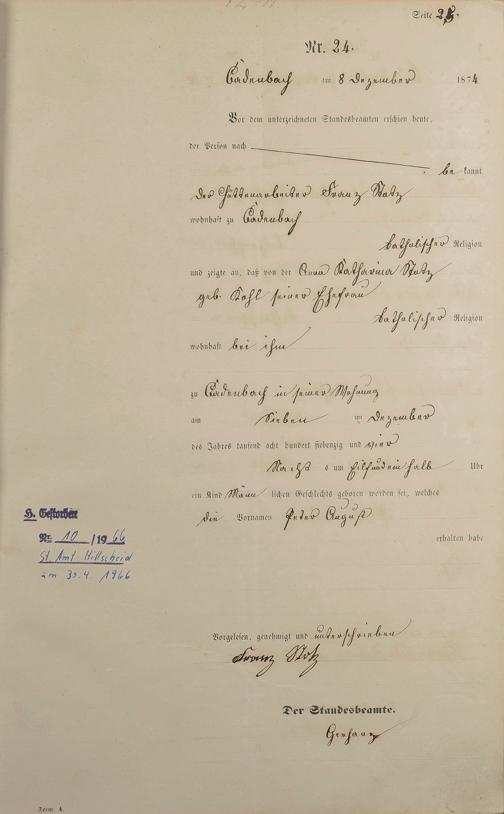 Seite 25.
Nr. 24.
Cadenbach am 8 Dezember 1874
Vor dem unterzeichneten Standesbeamten erschien heute,
der Person nach
be kannt
der Hüttenarbeiter Franz Stotz
wohnhaft zu Cadenbach
katholischer Religion
und zeigte an, daß von der Anna Katharina Stotz
geb. Kohl seiner Ehefrau
katholischer Religion
wohnhaft bei ihm
zu Cadenbach in seiner Wohnung
am sieben ten Dezember
des Jahres tausend acht hundert siebenzig und vier
Nachts um Eilf und ein halb Uhr
ein Kind Männ lichen Geschlechts geboren worden sei, welches
die Vornamen Peter August
erhalten habe
H. Gestorben
Nr. 10 / 19 66
St. Amt Hillscheid
am 30.4 1966
Vorgelesen, genehmigt und unterschrieben
Franz Stotz
Der Standesbeamte.
Form. A.